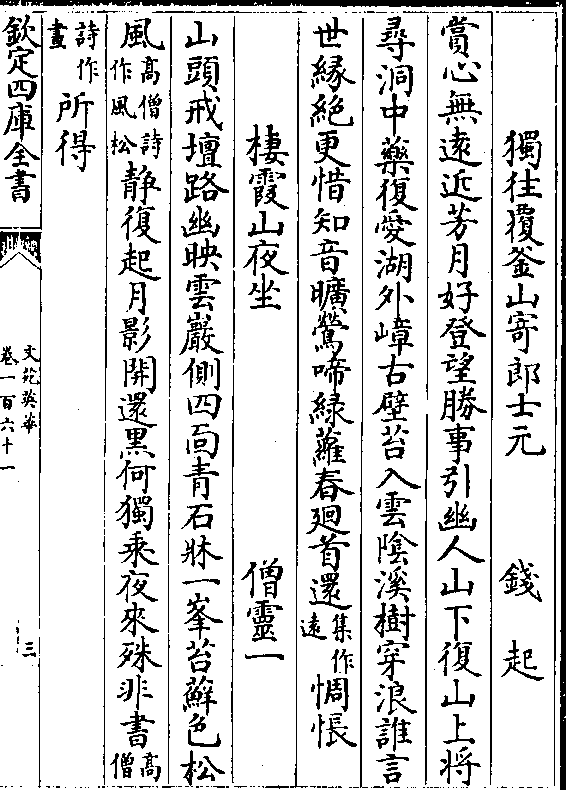 獨往覆釜山寄郎士元　錢起
賞心無遠近芳月好登望勝事引幽人山下復山上將
尋洞中藥復愛湖外嶂古壁苔入雲陰溪樹穿浪誰言
世緣絶更惜知音曠鶯啼緑蘿春廻首還集作遠惆悵
棲霞山夜坐　僧靈一
山頭戒壇路幽映雲巖側四面青石牀一峯苔蘚色松
風高僧詩作風松静復起月影開還黒何獨乘夜來殊非書高僧
詩作畫所得
欽定四庫全書
文苑英華
卷一百六十一
三